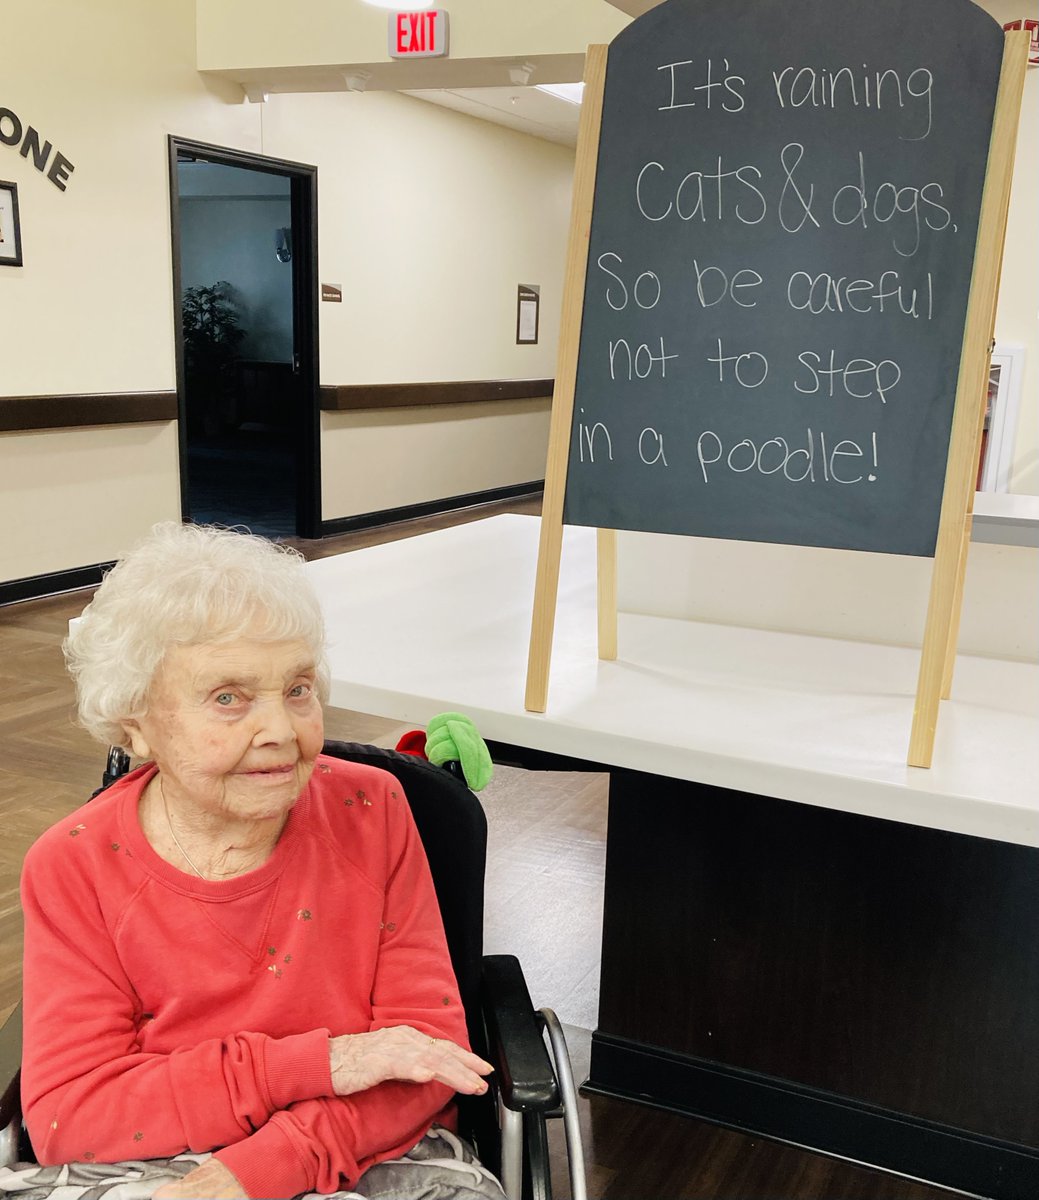 EXIT
ONE
It's raining
Cats & dogs.
So be careful
not to step
in a poodle!